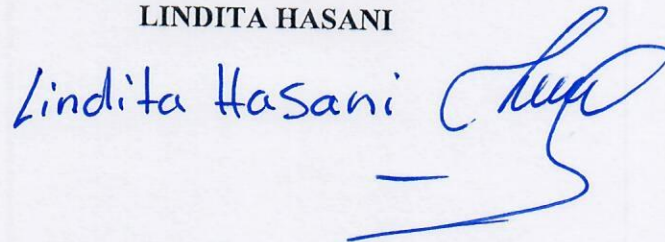 LINDITA HASANI
Lindita Hasani